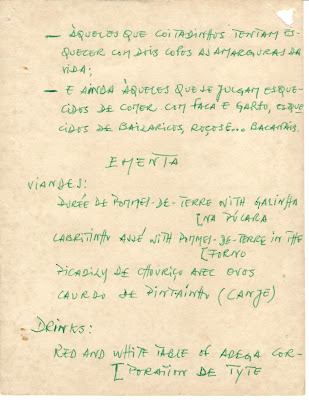 — ÀQUELES QUE COITADINHOS TENTAM ES-
QUECER COM DOIS COPOS AS AMARGURAS DA
VIDA;
— E AINDA ÀQUELES QUE SE JULGAM ESQUE-
CIDOS DE COMER COM FACA E GARFO, ESQUE
CIDOS DE BAILARICOS, ROÇOSE... BACANAIS.
EMENTA
VIANDES:
PURÉE DE POMMES-DE-TERRE WITH GALINHA
[NA PÚCARA
CABRITINHO ASSÉ WITH POMMES-DE-TERRE IN THE
[FORNO
PICADILY DE CHOURIÇO AVEC OVOS
CAURDO DE PINTAINHO (CANJE)
DRINKS:
RED AND WHITE TABLE OF ADEGA COR-
[PORATION DE TYTE